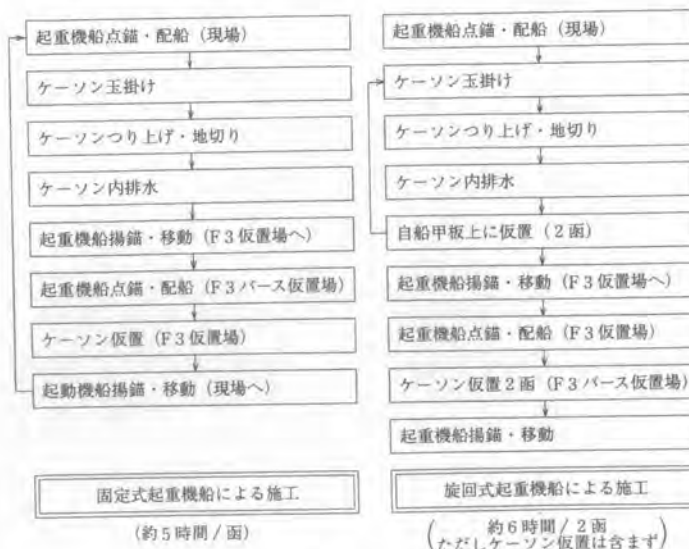 起重機船点錨・配船（現場）
ケーソン玉掛け
ケーソンつり上げ・地切り
ケーソン内排水
起重機船揚錨・移動（F3仮置場へ）
起重機船点錨・配船（F3バース仮置場）
ケーソン仮置（F3仮置場）
起動機船揚錨・移動（現場へ）
固定式起重機船による施工
（約5時間/函）
起重機船点錨・配船（現場）
ケーソン玉掛け
ケーソンつり上げ・地切り
ケーソン内排水
自船甲板上に仮置（2函）
起重機船揚錨・移動（F3仮置場へ）
起重機船点錨・配船（F3仮置場）
ケーソン仮置2函（F3バース仮置場）
起重機船揚錨・移動
旋回式起重機船による施工
（約6時間/2函
ただしケーソン仮置は含まず）